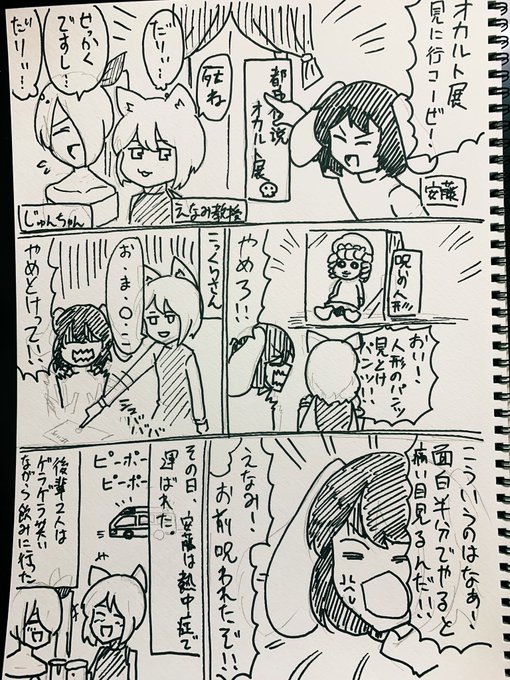 オカルト展
見に行コーゼー！
安藤
都市伝説
オカルト展
死ね
えなみ教授
だりぃ…
せっかく
ですし…
だりぃ…
じゅんちゃん
呪いの人形
おい！
人形のパンツ
見とけ
パンツ！！
やめろ！！
こっくりさん
お・ま・〇・こ
やめとけって！！
シュバババ
こういうのはなぁ！
面白半分でやると
痛い目見るんだ！！
えなみ！
お前呪われたぞ！！
その日、安藤は熱中症で
運ばれた。
ピーポー
ピーポー
後輩2人は
ゲラゲラ笑い
ながら飲みに行った